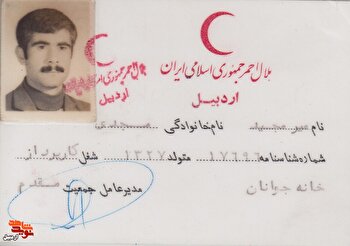 هلال احمر جمهوری اسلامی ایران
اردبیل
هلال احمر جمهوری اسلامی ایران
اردبیل
نام میر مجید نام خانوادگی
شماره شناسنامه ۱۷۶۹۶ متولد ۱۳۲۷ شغل کاربر از
خانه جوانان مدیر عامل جمعیت مقدم